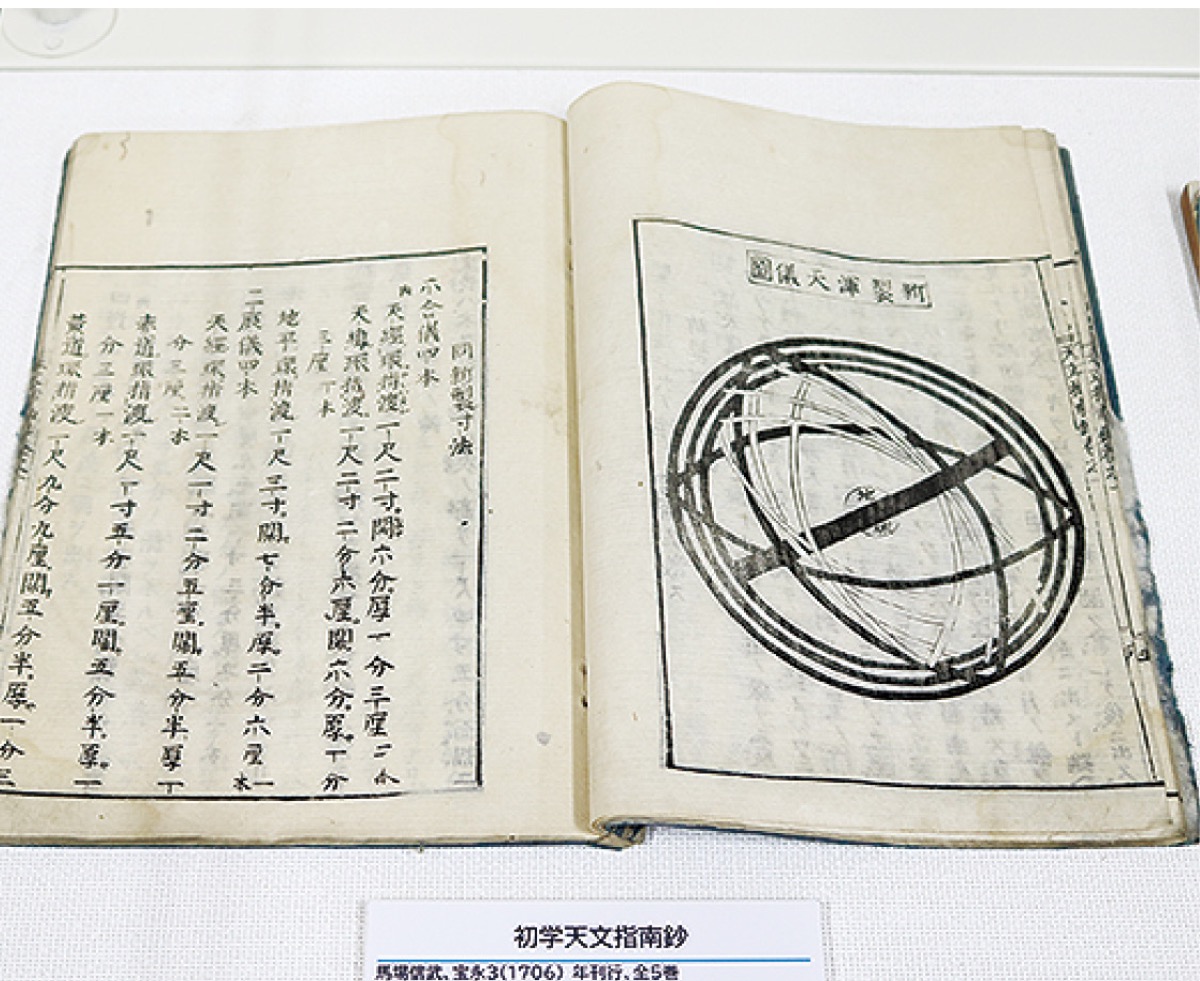 新製渾天儀圖
地
同新製寸法
六合儀四本
天經環指渡一尺二寸闊六分厚一分三厘二本
天緯環指渡一尺二寸二分六厘闊六分厚一分
三厘一本
地平環指渡一尺三寸闊七分半厚二分六厘一本
二辰儀四本
天經環指渡一尺一寸二分五厘闊五分半厚一
分三厘二本
赤道環指渡一尺一寸五分一厘闊五分半厚一
分三厘一本
黄道環指渡一尺九分九厘闊五分半厚一分三
初学天文指南鈔
馬場信武、宝永3(1706) 年刊行、全5巻